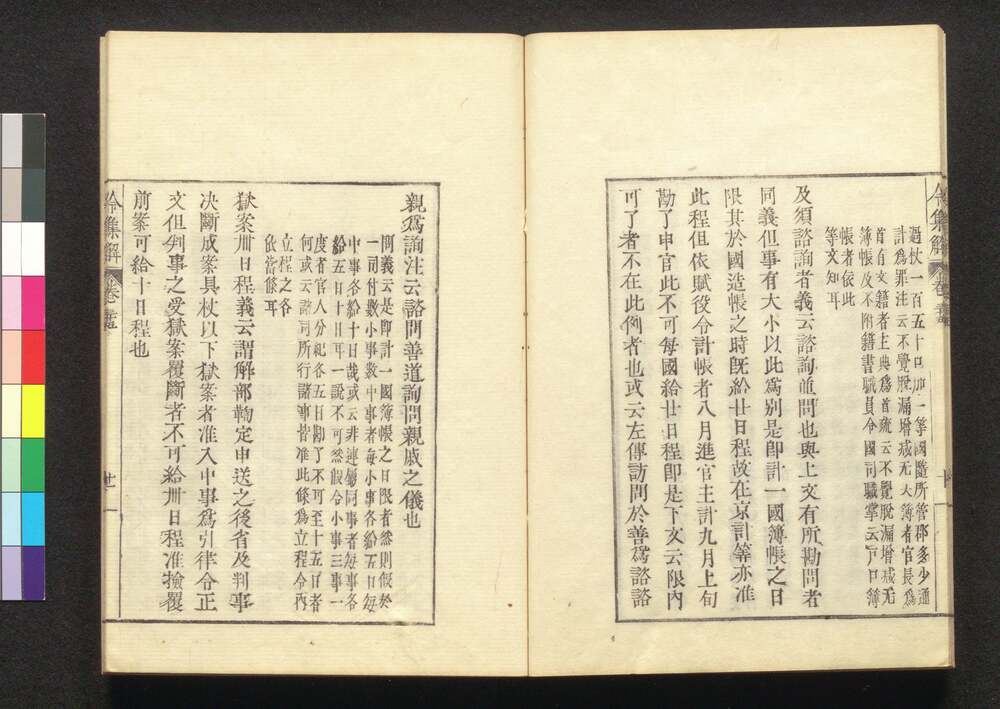 令集解 卷
過杖一百五十口加一等國隨所管郡多少通
計爲罪注云不覺脫漏增減无大簿者官長爲
首有文籍者主典爲首疏云不覺脫漏增減无
簿帳及不附籍書職員令國司職掌云戶口簿
帳者依此
等文知耳
及須諮詢者義云諮詢並問也與上文有所勘問者
同義但事有大小以此爲别是即計一國簿帳之日
限其於國造帳之時旣給廿日程故在京計等亦准
此程但依賦役令計帳者八月進官主計九月上旬
勘了申官此不可每國給廿日程即是下文云限內
可了者不在此例者也或云左傳訪問於善爲諮諮
親爲詢注云諮問善道詢問親戚之儀也
問義云是即計一國簿帳之日限者然則假於
一司付數小事數中事者每小事各給五日每
中事各給十日哉或云非連屬同事者每事各
給五日十日耳一說不可然假令小事三事一
度者官人分紀各五日勘了不可至十五日者
何或云諸司所行諸事皆准此條爲立程令內
立程之各
依當條耳
獄案卅日程義云謂解部鞫定申送之後省及判事
决斷成案具杖以下獄案者准入中事爲引律令正
文但判事之受獄案覆斷者不可給卅日程准撿覆
前案可給十日程也
令集解 卷
廿一